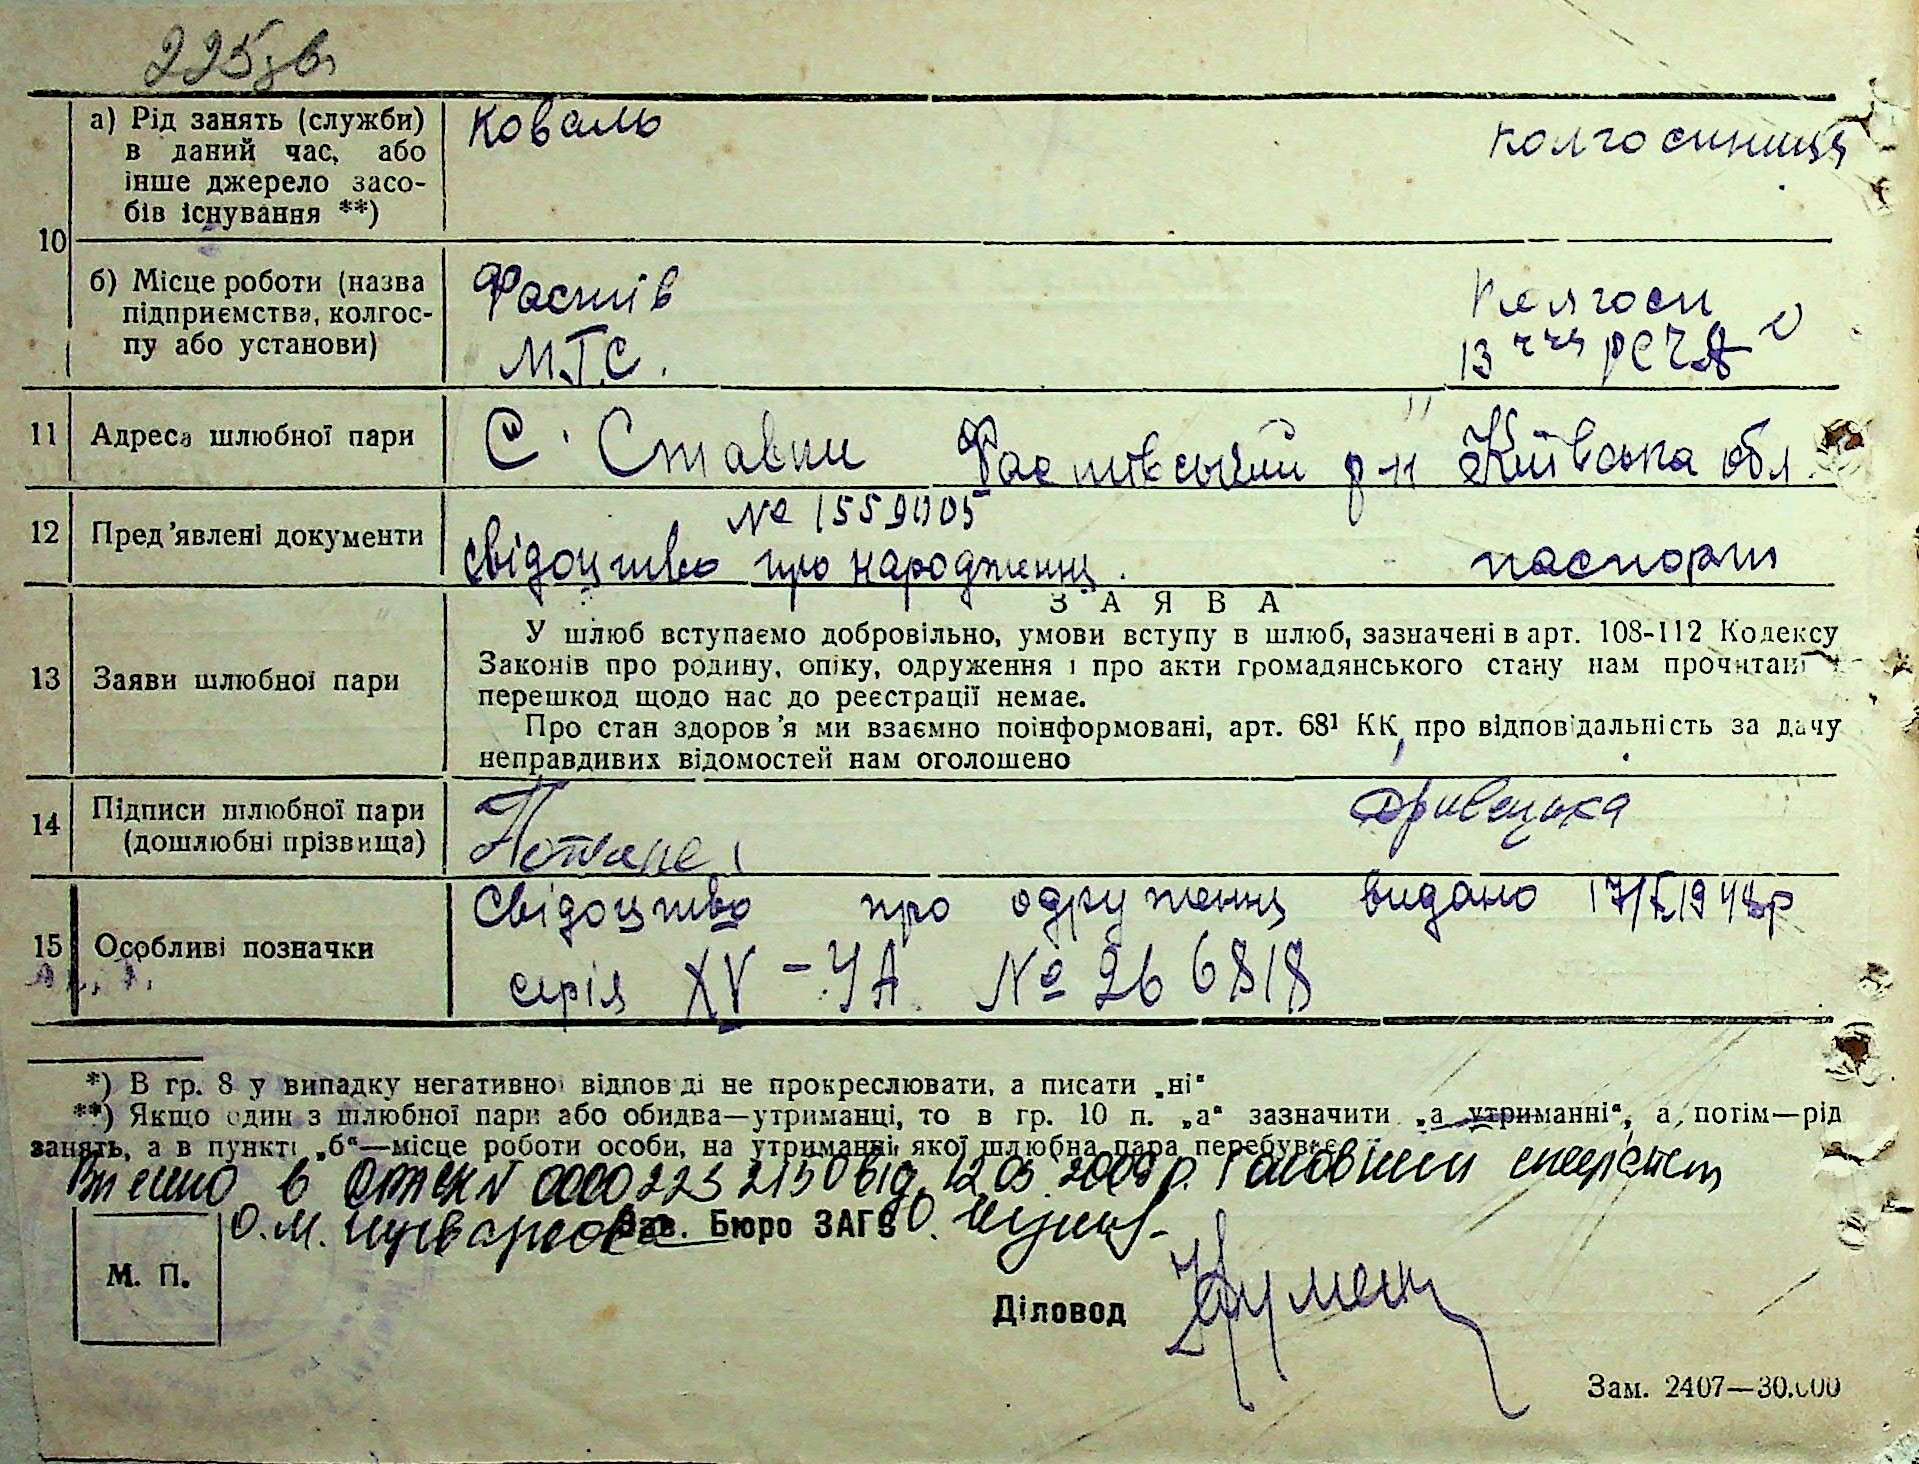 225 зв.
10
а) Рід занять (служби) в даний час, або інше джерело засобів існування **)
Коваль
колгоспниця
б) Місце роботи (назва підприємства, колгоспу або установи)
Фастів
М.Т.С.
Колгосп
13 РСЧА
11 Адреса шлюбної пари
С. Ставки Фастівський р-н Київська обл
12 Пред'явлені документи
№ 1559005
свідоцтво про народження.
паспорт
13 Заяви шлюбної пари
ЗАЯВА
У шлюб вступаємо добровільно, умови вступу в шлюб, зазначені в арт. 108-112 Кодексу
Законів про родину, опіку, одруження і про акти громадянського стану нам прочитані
перешкод щодо нас до реєстрації немає.
Про стан здоров'я ми взаємно поінформовані, арт. 68¹ КК, про відповідальність за дачу
неправдивих відомостей нам оголошено
14 Підписи шлюбної пари (дошлюбні прізвища)
15 Особливі позначки
Свідоцтво про одруження видано 17/X 1948р
серія XV - УА № 266818
*) В гр. 8 у випадку негативної відповіді не прокреслювати, а писати „ні“
**) Якщо один з шлюбної пари або обидва—утриманці, то в гр. 10 п. „а“ зазначити „а утриманні“, а потім—рід
занять, а в пункті „б“—місце роботи особи, на утриманні якої шлюбна пара перебуває
Внесено в 00002232150 від 12.03.2009р. Головним спеціалістом
О.М.
Зав. Бюро ЗАГС
М. П.
Діловод
Зам. 2407—30.000